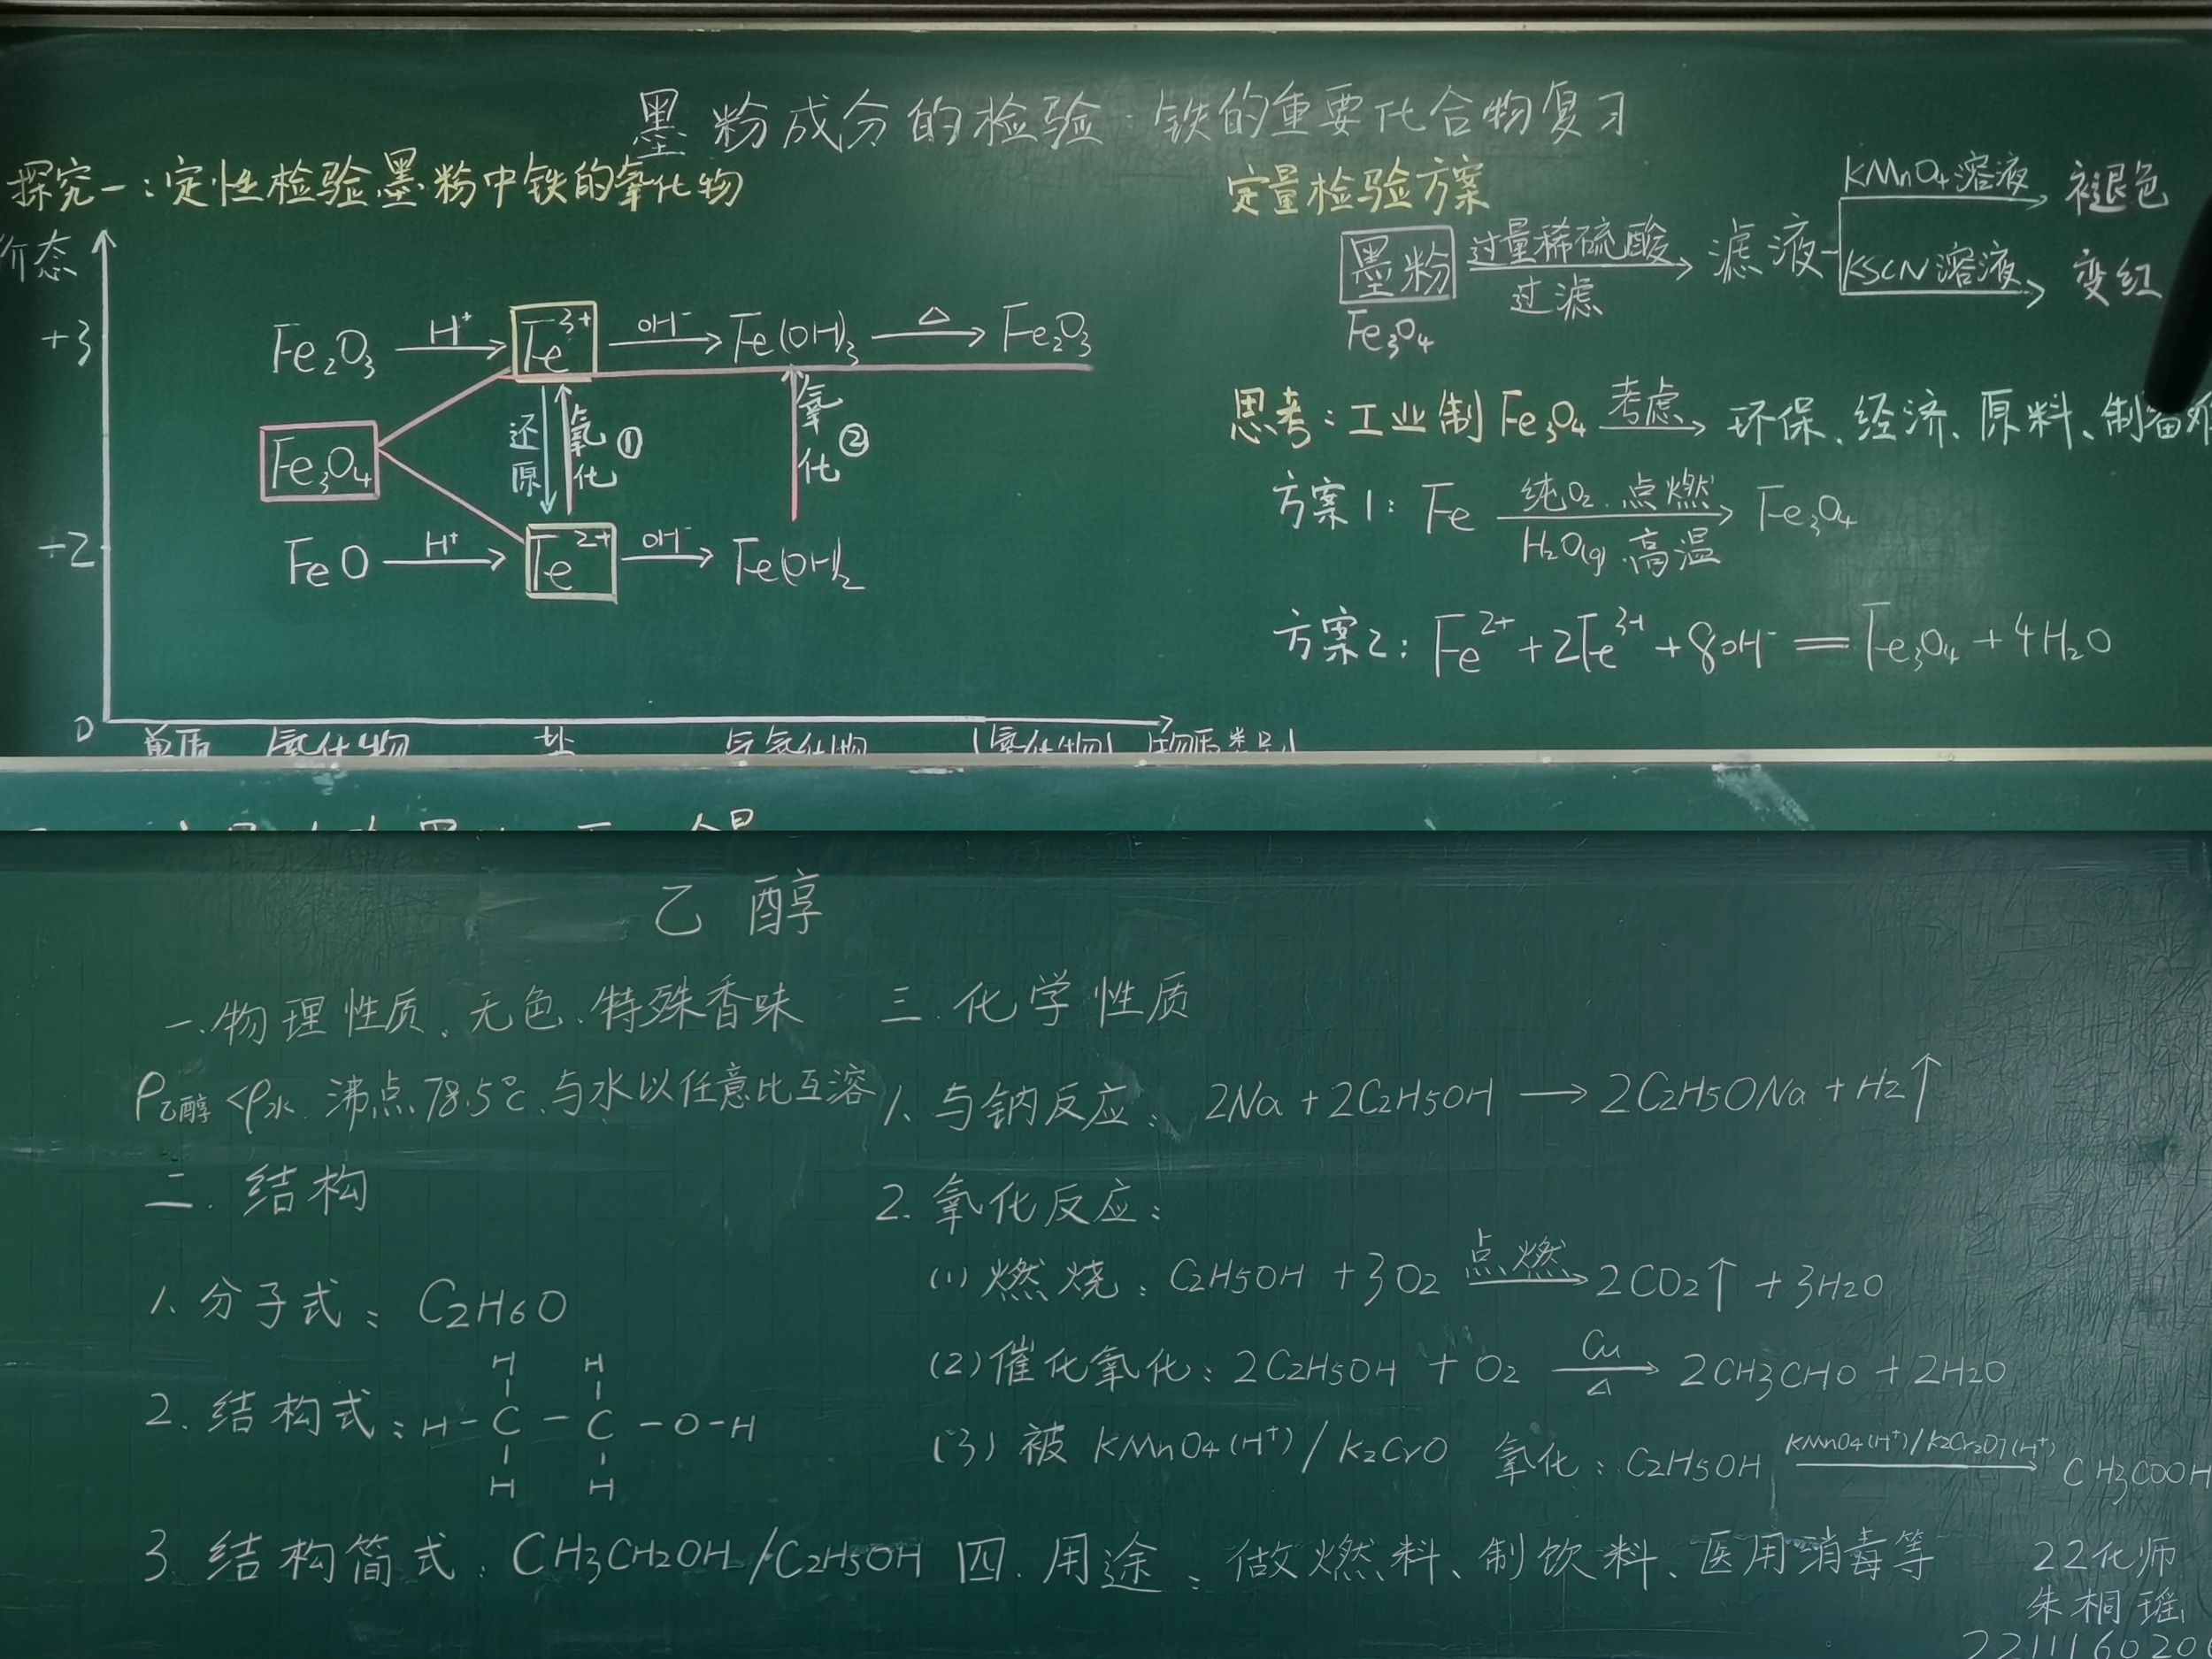 墨粉成分的检验·铁的重要化合物复习
探究一:定性检验墨粉中铁的氧化物
价态
+3
+2
0
Fe₂O₃ —H⁺→ Fe³⁺ —OH⁻→ Fe(OH)₃ —△→ Fe₂O₃
还原 氧化 ① 氧化 ②
Fe₃O₄
FeO —H⁺→ Fe²⁺ —OH⁻→ Fe(OH)₂
单质 氧化物 盐 氢氧化物 (氧化物) 物质类别
定量检验方案
墨粉 —过量稀硫酸/过滤→ 滤液
Fe₃O₄
KMnO₄溶液→ 褪色
KSCN溶液→ 变红
思考:工业制Fe₃O₄ —考虑→ 环保、经济、原料、制备
方案1: Fe —纯O₂.点燃/H₂O(g).高温→ Fe₃O₄
方案2: Fe²⁺+2Fe³⁺+8OH⁻=Fe₃O₄+4H₂O
乙醇
一.物理性质、无色、特殊香味
ρ乙醇<ρ水、沸点78.5℃、与水以任意比互溶
二.结构
1.分子式:C2H6O
2.结构式:
H H
H-C-C-O-H
H H
3.结构简式:CH3CH2OH/C2H5OH
三.化学性质
1.与钠反应:2Na+2C2H5OH→2C2H5ONa+H2↑
2.氧化反应:
(1)燃烧:C2H5OH+3O2 —点燃→ 2CO2↑+3H2O
(2)催化氧化:2C2H5OH+O2 —Cu/△→ 2CH3CHO+2H2O
(3)被KMnO4(H⁺)/K2CrO 氧化:C2H5OH —KMnO4(H⁺)/K2Cr2O7(H⁺)→ CH3COOH
四.用途:做燃料、制饮料、医用消毒等
22化师
朱桐瑶